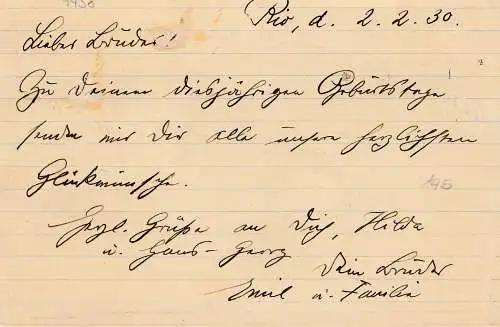 1930
Rio, d. 2.2.30.
Lieber Bruder!
Zu Deinem diesjährigen Geburtstage
senden wir Dir alle unsere herzlichsten
Glückwünsche.
195
Herzl. Grüße an Dich, Hilda
u. Hans-Georg
Dein Bruder
Emil u. Familie